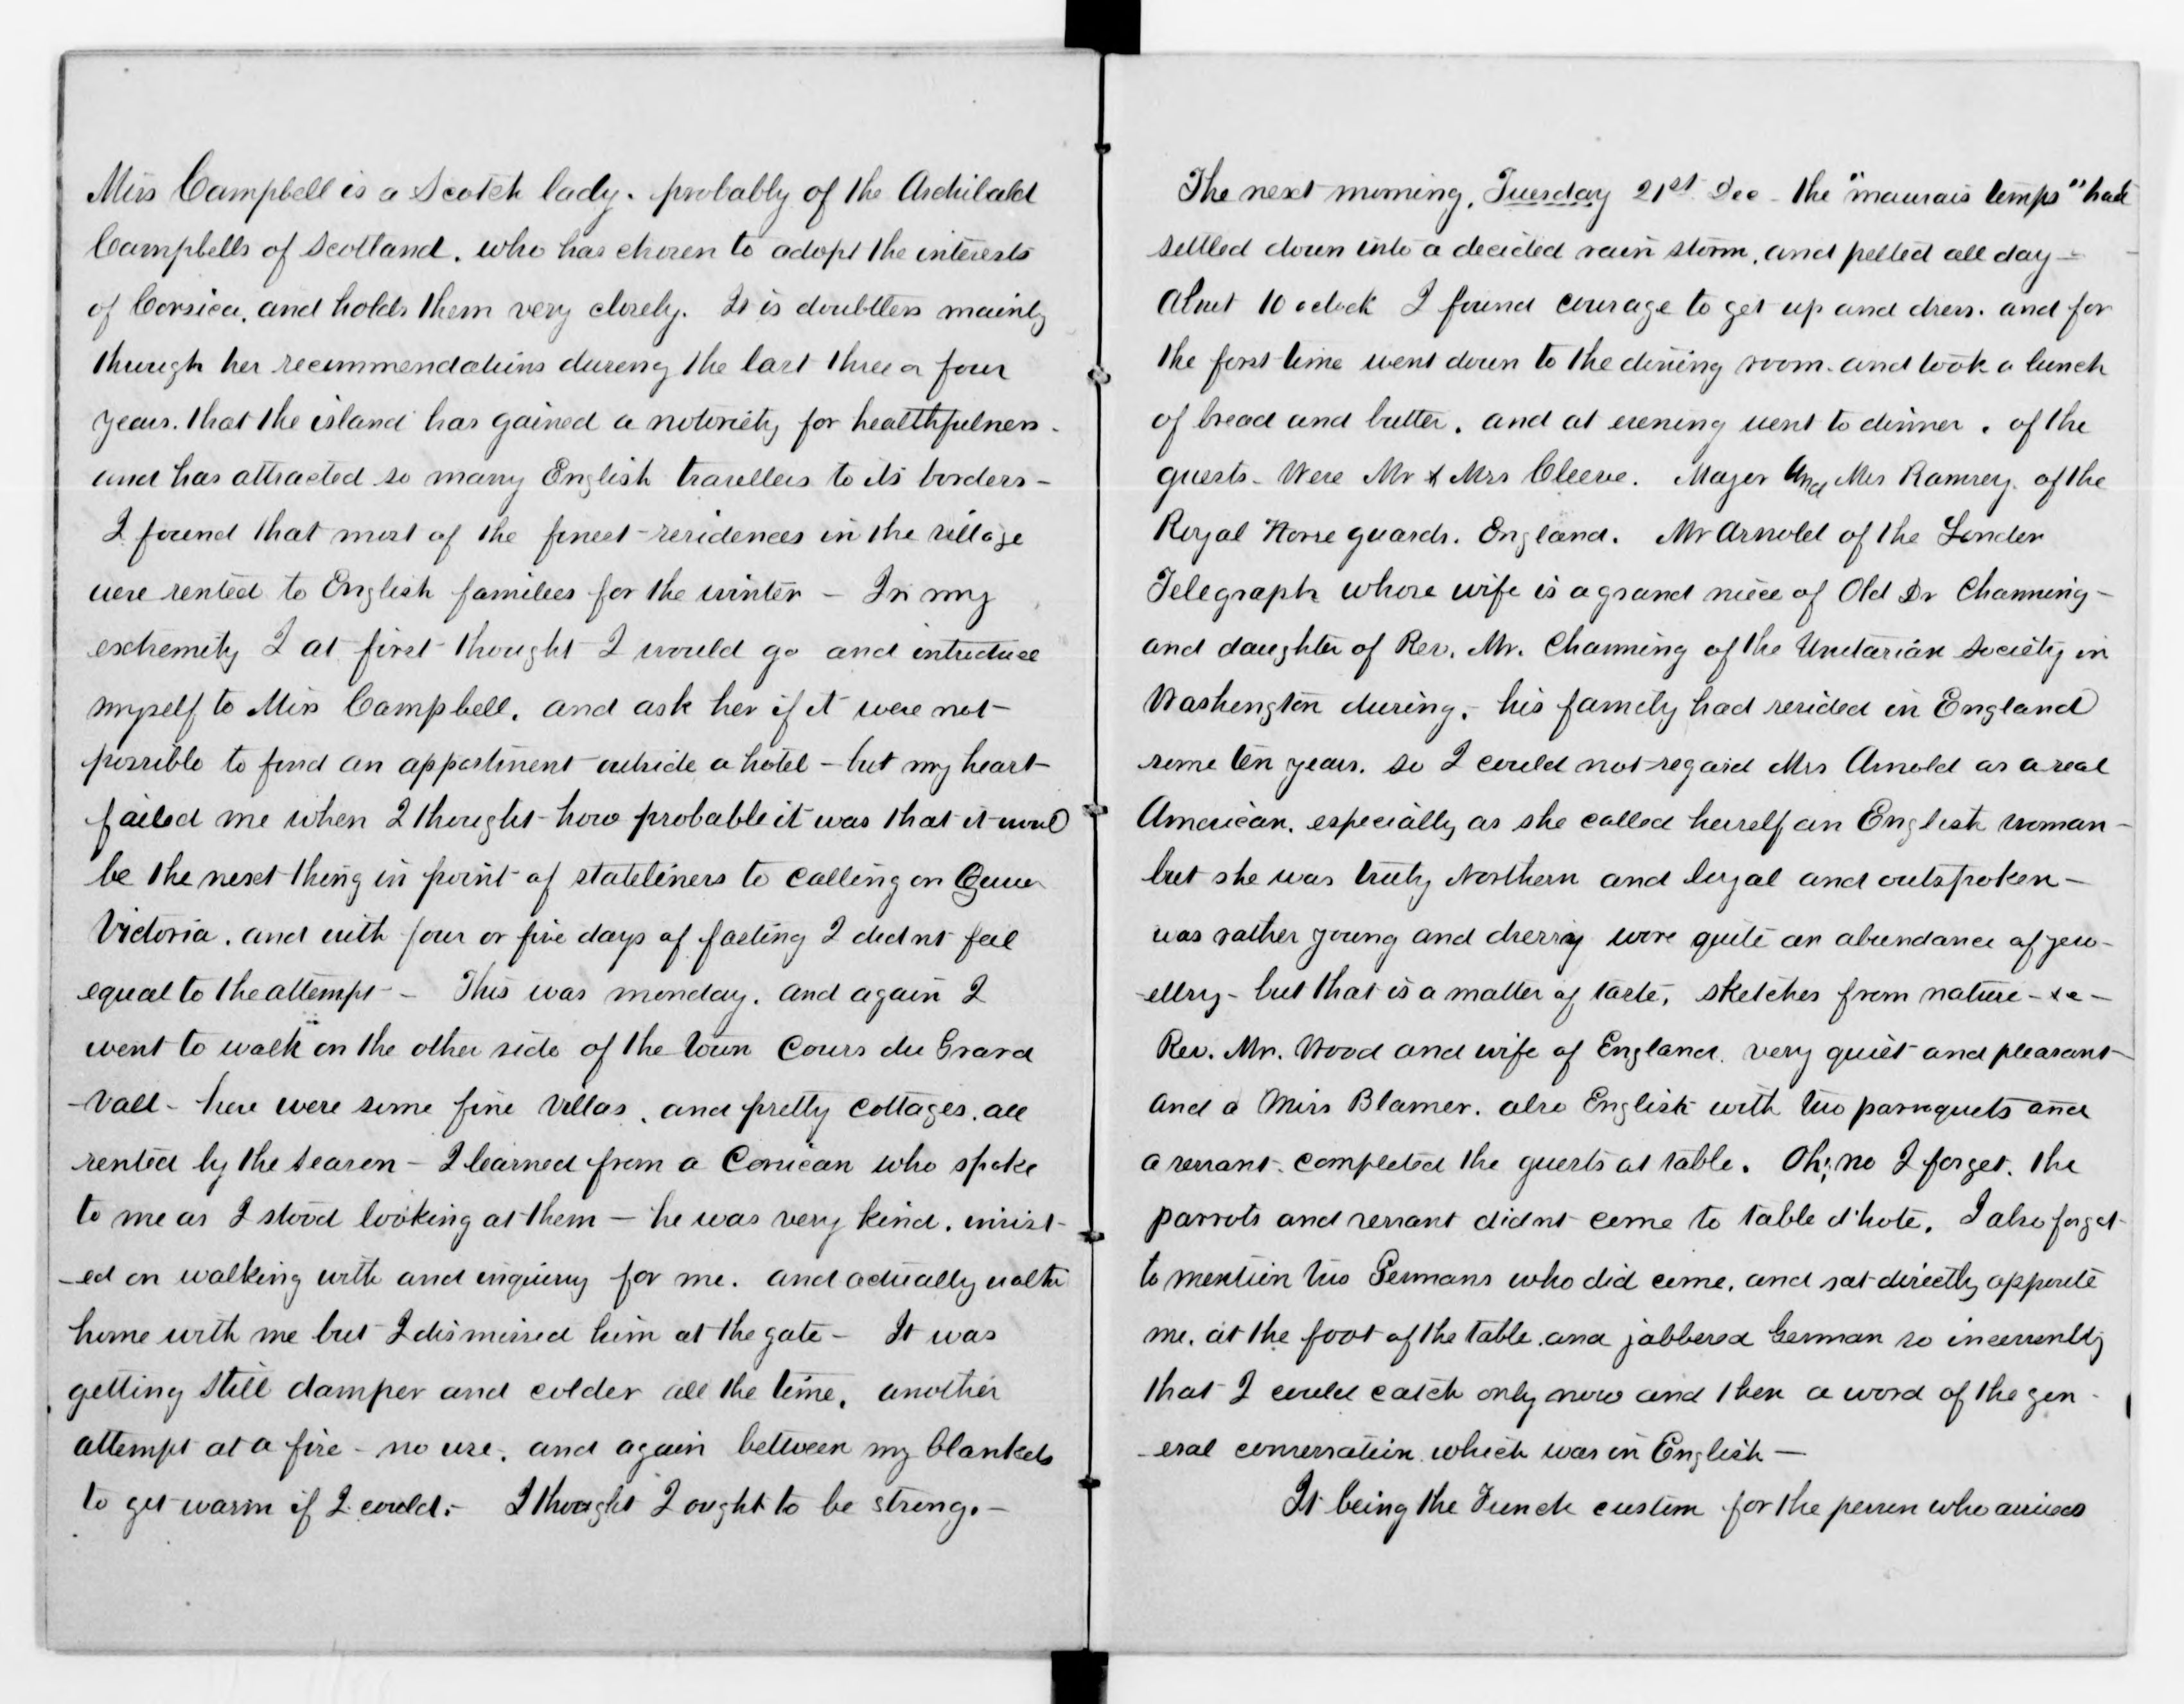 Miss Campbell is a Scotch lady. probably of the Archibald
Campbells of Scotland. who has chosen to adopt the interests
of Corsica, and holds them very closely. It is doubtless mainly
through her recommendations during the last three or four
years. that the island has gained a notoriety for healthfulness -
and has attracted so many English travellers to its borders -
I found that most of the finest residences in the village
were rented to English families for the winter - In my
extremity I at first thought I would go and introduce
myself to Miss Campbell, and ask her if it were not
possible to find an appartment outside a hotel - but my heart
failed me when I thought how probable it was that it would
be the next thing in point of stateliness to calling on Queen
Victoria. and with four or five days of fasting I didnt feel
equal to the attempt - This was monday. and again I
went to walk on the other side of the town Cours du Grand
-vall - here were some fine villas, and pretty cottages. all
rented by the season - I learned from a Corsican who spoke
to me as I stood looking at them - he was very kind. insist-
-ed on walking with and inquiring for me. and actually walked
home with me but I dismissed him at the gate - It was
getting still damper and colder all the time, another
attempt at a fire - no use. and again between my blankets
to get warm if I could. - I thought I ought to be strong. -
The next morning, Tuesday 21st Dec - the "mauvais temps" had
settled down into a decided rain storm, and pelted all day -
About 10 oclock I found courage to get up and dress. and for
the first time went down to the dining room. and took a lunch
of bread and butter, and at evening went to dinner. of the
guests - Were Mr & Mrs Cleeve. Mayor and Mrs Ramsey of the
Royal Horse guards. England. Mr Arnold of the London
Telegraph whose wife is a grand niece of Old Dr Channing -
and daughter of Rev. Mr. Channing of the Unitarian Society in
Washington during, - his family had resided in England
some ten years. so I could not regard Mrs Arnold as a real
American. especially as she called herself an English woman -
but she was truly Northern and loyal and outspoken -
was rather young and dressy wore quite an abundance of jew-
-ellry - but that is a matter of taste, sketches from nature - &c -
Rev. Mr. Wood and wife of England. very quiet and pleasant
and a Miss Blamer. also English with two parroquets and
a servant. completed the guests at table. Oh; no I forget. the
parrots and servant didnt come to table d'hote. I also forget
to mention two Germans who did come, and sat directly opposite
me. at the foot of the table. and jabbered German so incessantly
that I could catch only now and then a word of the gen-
-eral conversation which was in English -
It being the French custom for the person who arrives